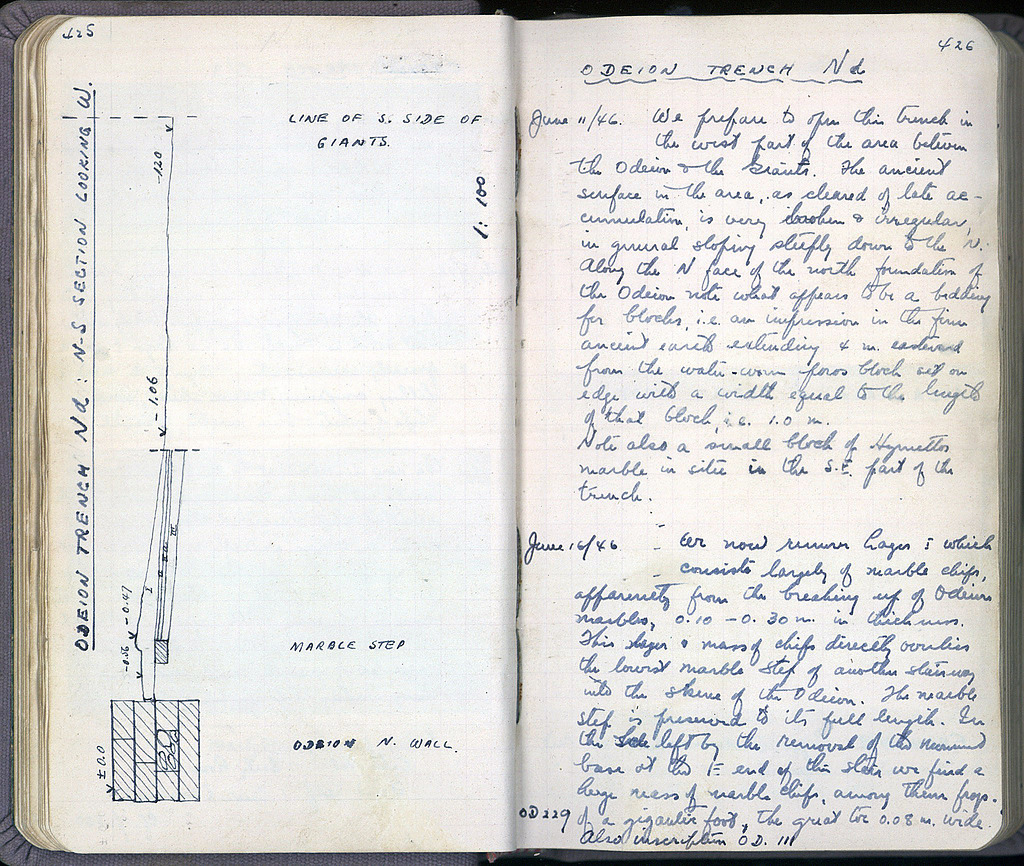 425
ODEION TRENCH Nd : N-S SECTION LOOKING W.
LINE OF S. SIDE OF
GIANTS.
1:100
-1.20
-1.06
III
II
I
-0.47
-0.56
MARBLE STEP
ODEION N. WALL.
±0.0
426
ODEION TRENCH Nd
June 11/46. We prepare to open this trench in
the west part of the area between
the Odeion & the Giants. The ancient
surface in the area, as cleared of late ac-
cumulation, is very broken & irregular,
in general sloping steeply down to the N.
Along the N face of the north foundation of
the Odeion note what appears to be a bedding
for blocks, i.e. an impression in the firm
ancient earth extending 4 m. eastward
from the water-worn poros block set on
edge with a width equal to the length
of that block, i.e. 1.0 m.
Note also a small block of Hymettos
marble in situ in the S.E. part of the
trench.
June 16/46 - We now remove Layer I which
consists largely of marble chips,
apparently from the breaking up of Odeion
marbles, 0.10-0.30 m. in thickness.
This layer & mass of chips directly overlies
the lowest marble step of another stairway
into the skene of the Odeion. The marble
step is preserved to its full length. In
the left by the removal of the
base at the E end of this stair we find a
large mass of marble chips, among them frags.
OD 229 of a gigantic foot, the great toe 0.08 m. wide.
Also inscription OD. 111